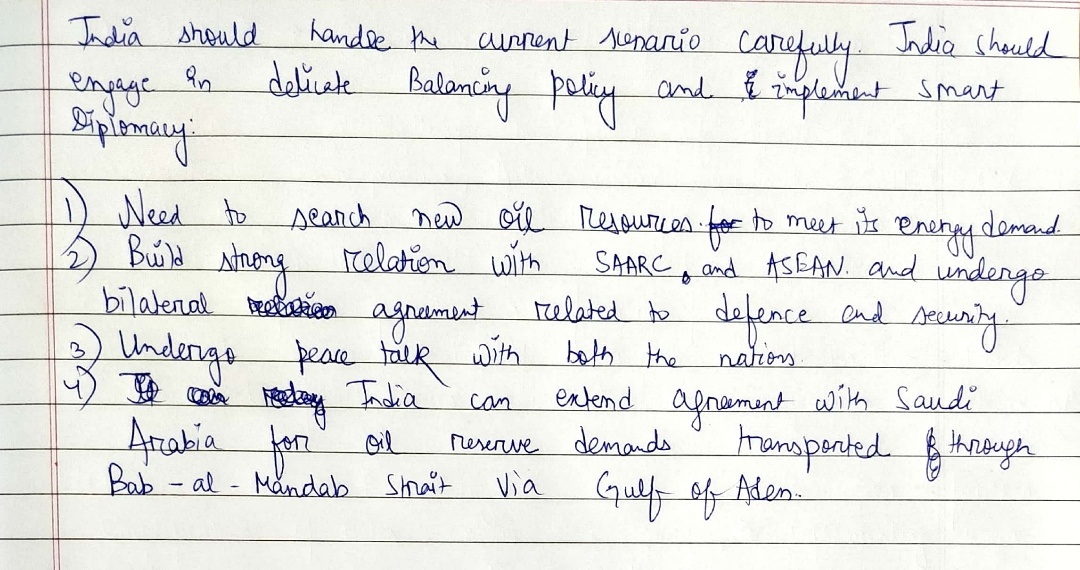 India should handle the current scenario carefully. India should
engage in delicate Balancing policy and implement smart
Diplomacy:
1) Need to search new oil resources for to meet its energy demand.
2) Build strong relation with SAARC, and ASEAN. and undergo
bilateral relation agreement related to defence and security.
3) Undergo peace talk with both the nations.
4) India can extend agreement with Saudi
Arabia for oil reserve demands transported through
Bab-al-Mandab Strait via Gulf of Aden.